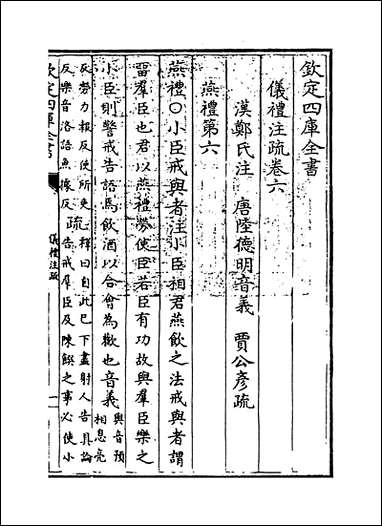 欽定四庫全書
儀禮注疏卷六
漢鄭氏注　唐陸德明音義　賈公彥疏
燕禮第六
燕禮〇小臣戒與者注小臣相君燕飲之法戒與者謂
留羣臣也君以燕禮勞使臣若臣有功故與羣臣樂之
小臣則警戒告語焉飲酒以合會為歡也音義與音預
相息亮
反勞力報反使所吏
反樂音洛語魚據反疏釋曰自此已下盡射人告具論
告戒羣臣及陳饌之事必使小
欽定四庫全書
儀禮注疏
一